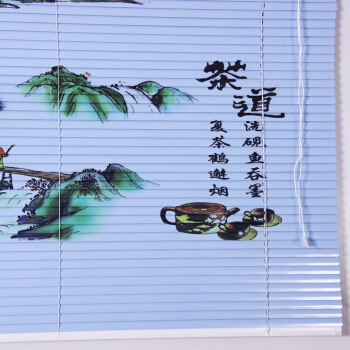 茶道
洗砚鱼吞墨
烹茶鹤避烟